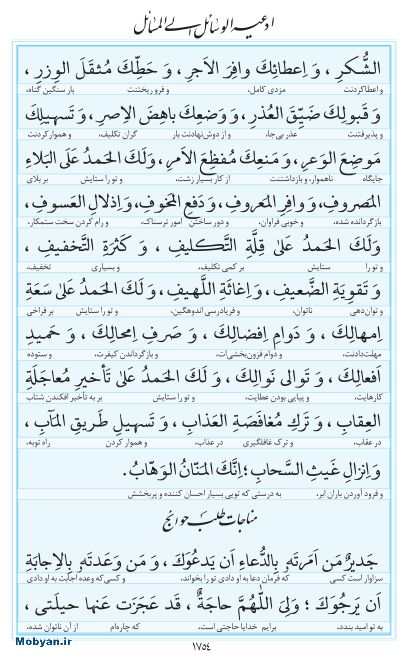 ادعیه الوسائل الی المسائل
الشُّكرِ ، وَ اِعطائِكَ وافِرَ الاَجرِ ، وَ حَطِّكَ مُثقَلَ الوِزرِ ،
و عطاکردنت مزدی کامل، و فرو ریختنت بار سنگین گناه،
وَ قَبولِكَ ضَیِّقَ العُذرِ، وَ وَضعِكَ باهِضَ الاِصرِ، وَ تَسهیلِكَ
و پذیرفتنت عذر بی‌جا، و از دوش‌نهادنت بار گران تکلیف، و هموار کردنت
مَوضِعَ الوَعرِ، وَ مَنعِكَ مُفظِعَ الاَمرِ، وَلَكَ الحَمدُ عَلَی البَلاءِ
جایگاه ناهموار، و بازداشتنت از کار بسیار زشت، و تو را ستایش بر بلای
المَصروفِ، وَ وافِرِ المَعروفِ، وَ دَفعِ المَخوفِ، وَ اِذلالِ العَسوفِ،
بازگردانده شده، و خوبی فراوان، و دور ساختن امور ترسناک، و رام کردن سخت ستمکار،
وَلَكَ الحَمدُ عَلیٰ قِلَّةِ التَّكلیفِ ، وَ كَثرَةِ التَّخفیفِ ،
و تو را ستایش بر کمی تکلیف، و بسیاری تخفیف،
وَ تَقوِیَةِ الضَّعیفِ، وَ اِغاثَةِ اللَّهیفِ، وَ لَكَ الحَمدُ عَلیٰ سَعَةِ
و توان‌دهی ناتوان، و فریادرسی اندوهگین، و تو را ستایش بر فراخی
اِمهالِكَ ، وَ دَوامِ اِفضالِكَ ، وَ صَرفِ اِمحالِكَ ، وَ حَمیدِ
مهلت‌دادنت، و دوام فزون‌بخشی‌ات، و بازگرداندن کیفرت، و ستوده
اَفعالِكَ ، وَ تَوالی نَوالِكَ ، وَ لَكَ الحَمدُ عَلیٰ تَأخیرِ مُعاجَلَةِ
کارهایت، و پیاپی بودن عطایت، و تو را ستایش بر به تأخیر افکندن شتاب
العِقابِ ، وَ تَركِ مُغافَصَةِ العَذابِ ، وَ تَسهیلِ طَریقِ المَآبِ ،
در عقاب، و ترک غافلگیری در عذاب، و هموار کردن راه توبه،
وَ اِنزالِ غَیثِ السَّحابِ؛ اِنَّكَ المَنّانُ الوَهّابُ.
و فرود آوردن باران ابر، به درستی که تویی بسیار احسان کننده و پربخشش
مناجات طلب حوائج
جَدیرٌ مَن اَمَرتَهُ بِالدُّعاءِ اَن یَدعُوَكَ ، وَ مَن وَعَدتَهُ بِالاِجابَةِ
سزاوار است کسی که فرمان دعا به او دادی تو را بخواند، و کسی که وعده اجابت به او دادی
اَن یَرجُوَكَ ؛ وَلِیَ اللّٰهُمَّ حاجَةٌ ، قَد عَجَزَت عَنها حیلَتی ،
به تو امید بندد، برایم خدایا حاجتی است، که چاره‌ام از آن ناتوان شده،
Mobyan.ir
١٧٥٤